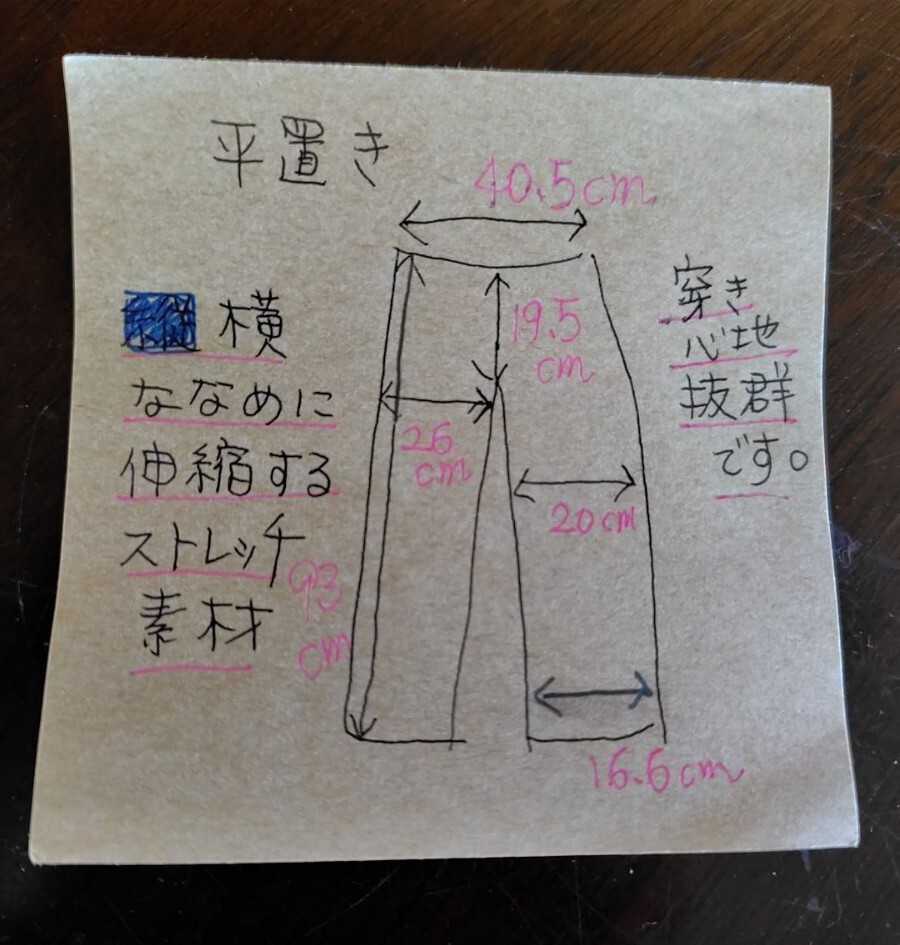 平置き
40.5cm
縦横
ななめに
伸縮する
ストレッチ
素材
穿き
心地
抜群
です。
19.5
cm
26
cm
20cm
93
cm
16.6cm